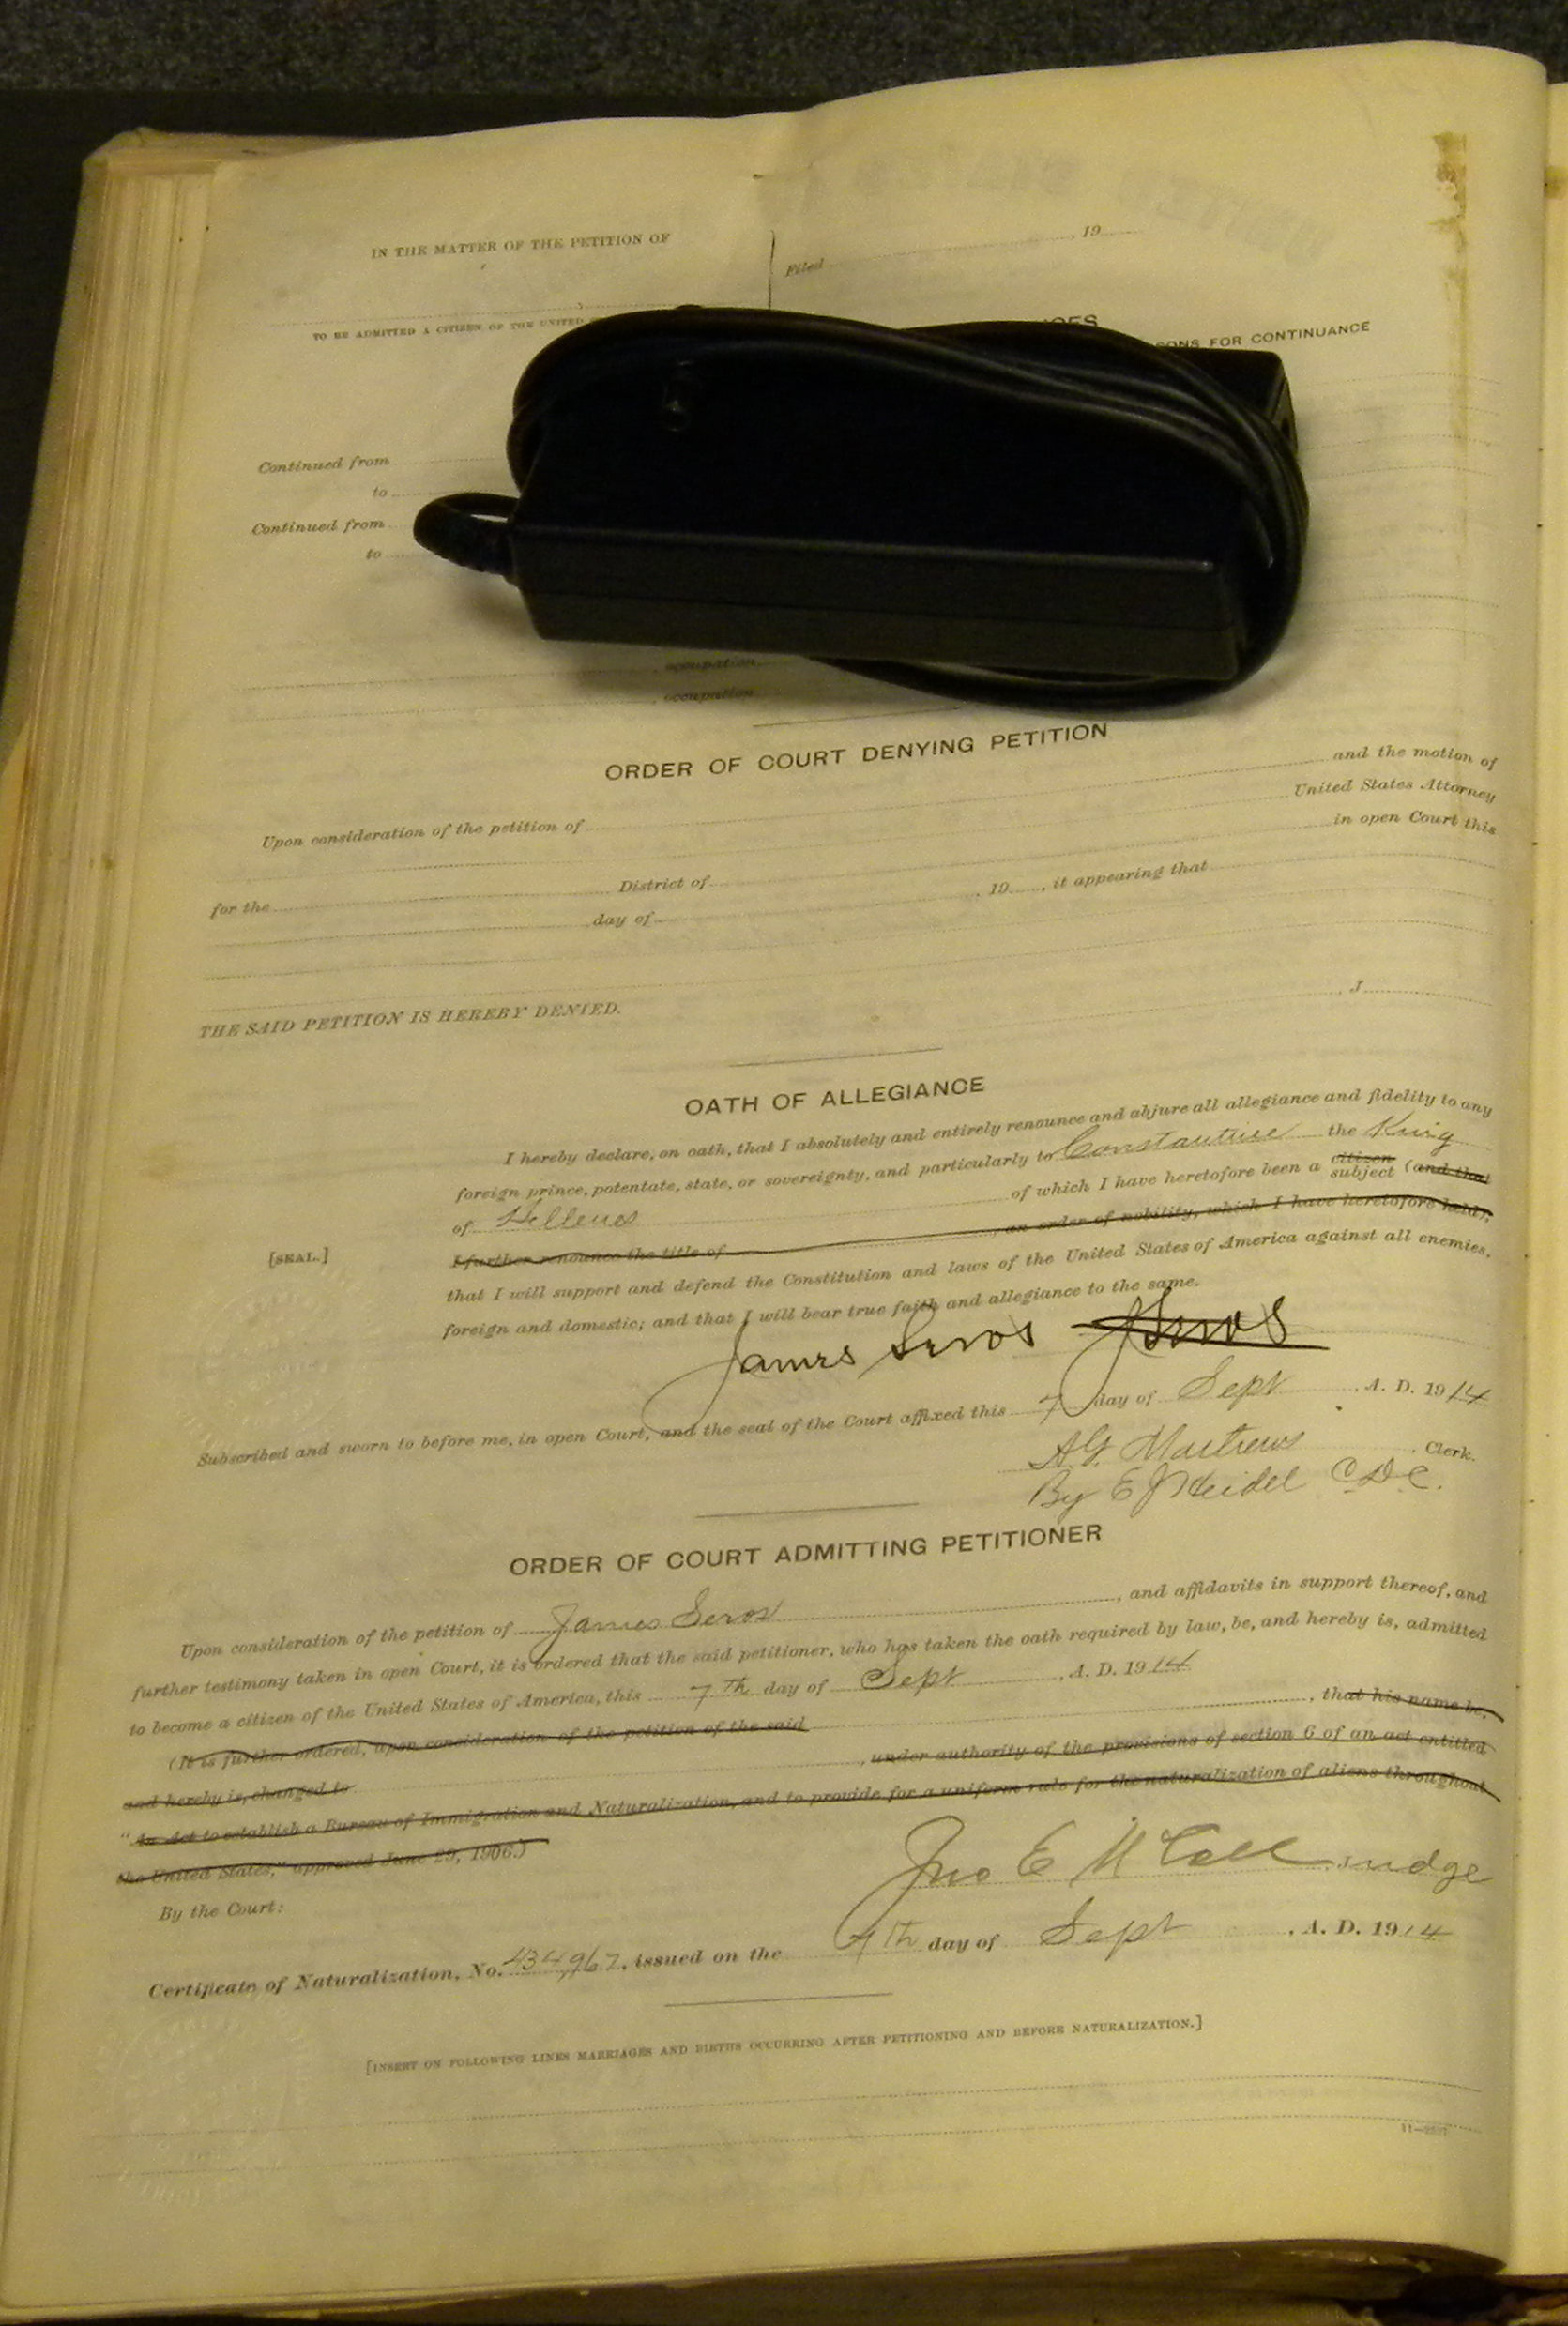 IN THE MATTER OF THE PETITION OF
Filed , 19
TO BE ADMITTED A CITIZEN OF THE UNITED
SONS FOR CONTINUANCE
Continued from
to
Continued from
to
, occupation
, occupation
ORDER OF COURT DENYING PETITION
Upon consideration of the petition of and the motion of
United States Attorney
for the District of in open Court this
day of , 19 , it appearing that
THE SAID PETITION IS HEREBY DENIED.
, J
OATH OF ALLEGIANCE
I hereby declare, on oath, that I absolutely and entirely renounce and abjure all allegiance and fidelity to any
foreign prince, potentate, state, or sovereignty, and particularly to Constantine the King
of Hellenes of which I have heretofore been a citizen subject (and that
[SEAL.] I further renounce the title of , an order of nobility, which I have heretofore held);
that I will support and defend the Constitution and laws of the United States of America against all enemies,
foreign and domestic; and that I will bear true faith and allegiance to the same.
James Seros
Subscribed and sworn to before me, in open Court, and the seal of the Court affixed this 7 day of Sept , A. D. 1914
A G Matthews , Clerk.
By E J Heidel C D C.
ORDER OF COURT ADMITTING PETITIONER
Upon consideration of the petition of James Seros , and affidavits in support thereof, and
further testimony taken in open Court, it is ordered that the said petitioner, who has taken the oath required by law, be, and hereby is, admitted
to become a citizen of the United States of America, this 7th day of Sept , A. D. 1914
(It is further ordered, upon consideration of the petition of the said , that his name be,
and hereby is, changed to , under authority of the provisions of section 6 of an act entitled
"An Act to establish a Bureau of Immigration and Naturalization, and to provide for a uniform rule for the naturalization of aliens throughout
the United States," approved June 29, 1906.)
By the Court: Jno E McCall , Judge
Certificate of Naturalization, No. 434967, issued on the 7th day of Sept , A. D. 1914
[INSERT ON FOLLOWING LINES MARRIAGES AND BIRTHS OCCURRING AFTER PETITIONING AND BEFORE NATURALIZATION.]